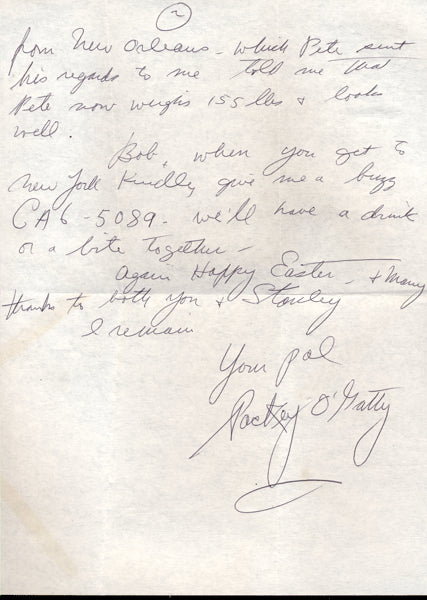 2
from New Orleans - which Pete sent
his regards to me told me that
Pete now weighs 155 lbs & looks
well.
Bob, when you get to
New York Kindly give me a buzz
CA6-5089. we'll have a drink
or a bite together -
again Happy Easter - & Many
thanks to both you & Stanley
I remain
Your pal
Packey O'Gatty